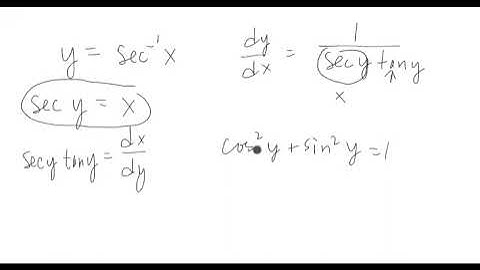 y = sec⁻¹ x
sec y = x
sec y tan y = dx/dy
dy/dx = 1/(sec y tan y)
x
cos² y + sin² y = 1